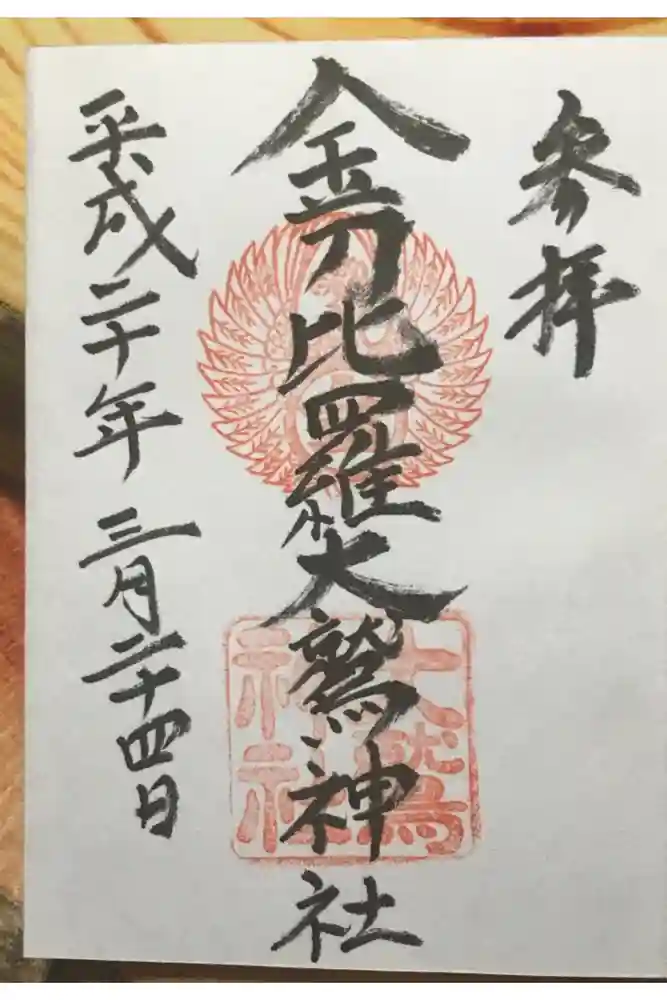 参拝
金刀比羅大鷲神社
大鷲
神社
平成二十年三月二十四日